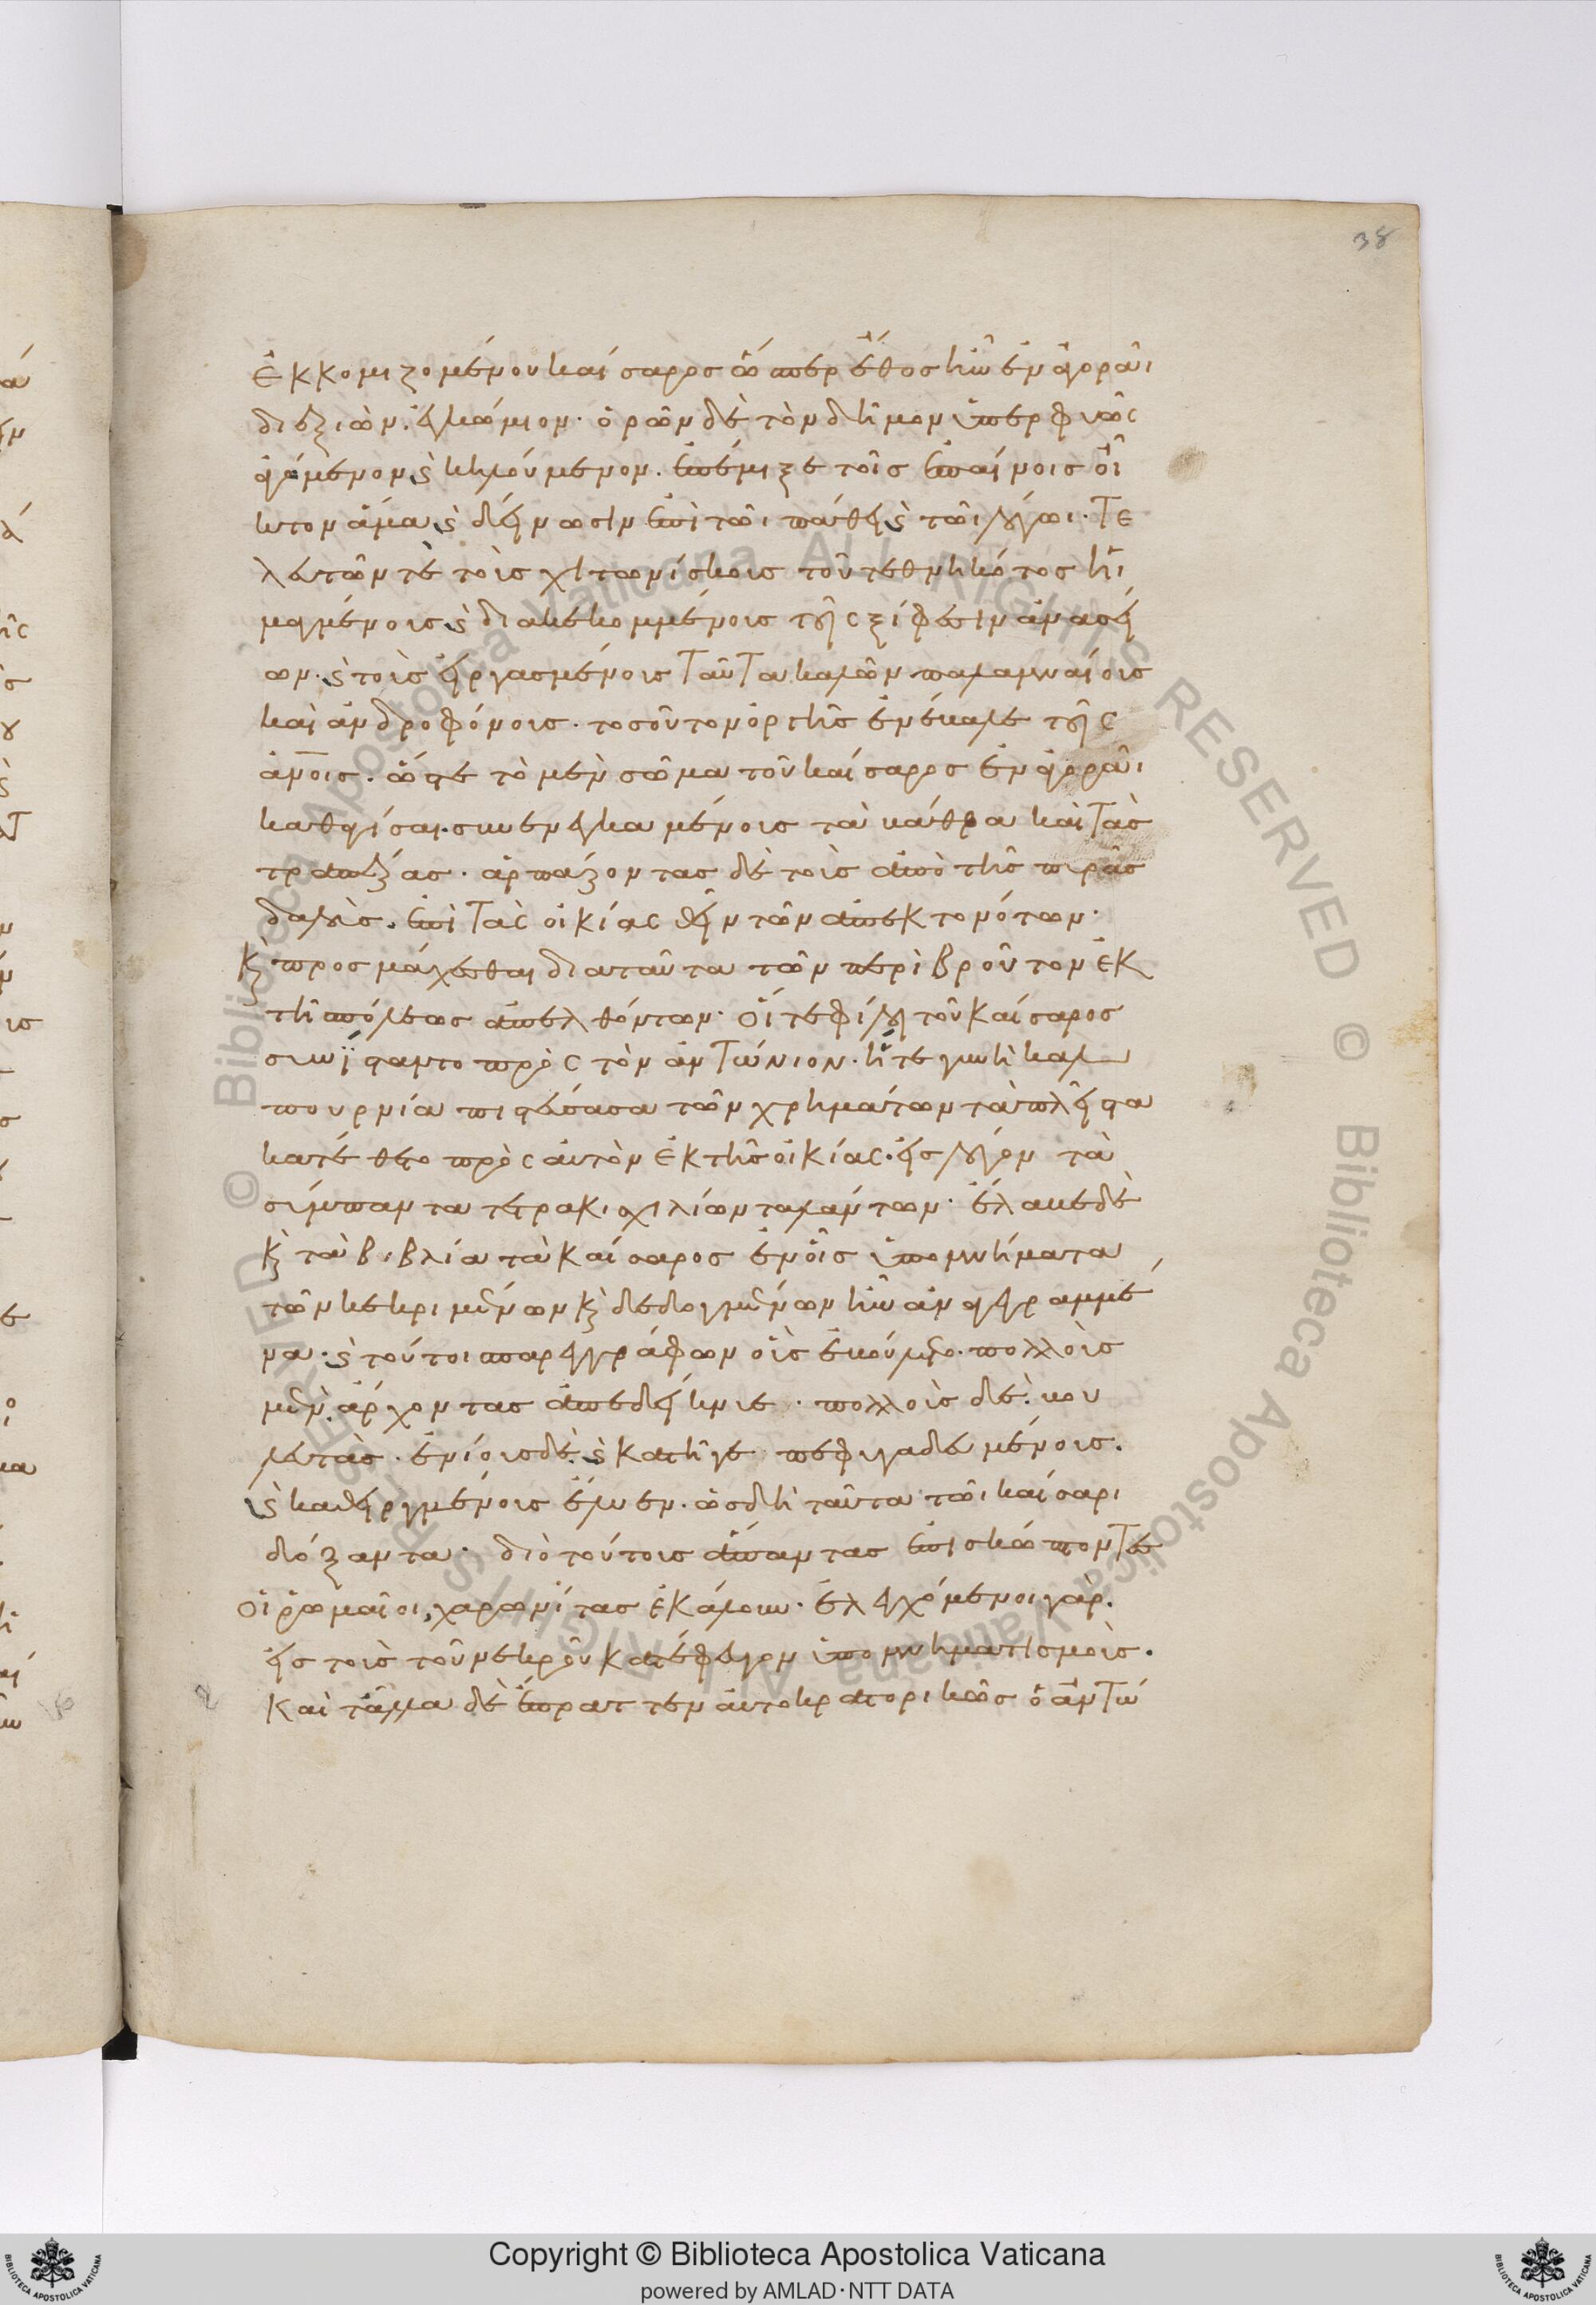 Ἐκκομιζομένου καίσαρος ὥσπερ ἔθος ἦν ἐν ἀγορᾶι
διεξιὼν ἐγκώμιον· ὁρῶν δὲ τὸν δῆμον ὑπερφυῶς
ἀγόμενον ϗ κηλούμενον. ἐπέμιξε τοῖς ἐπαίνοις οἶ
κτον ἅμα ϗ δείνωσιν ἐπὶ τῶι πάθει ϗ τῶι λόγωι. Τε
λευτῶν τὲ τοὺς χιτωνίσκους τοῦ τεθνηκότος ἡ
μαγμένους ϗ διακεκομμένους τοῖς ξίφεσιν ἀνασεί
ων· ϗ τοὺς εἰργασμένους ταῦτα καλῶν παλαμναίους
καὶ ἀνδροφόνους. τοσοῦτον ὀργῆς ἐνέβαλε τοῖς
ἀν̅οις. ὥστε τὸ μὲν σῶμα τοῦ καίσαρος ἐν ἀγορᾶι
καθαγίσαι. συνενεγκαμένους τὰ βάθρα καὶ τὰς
τραπέζας. ἁρπάζοντας δὲ τοὺς ἀπὸ τῆς πυρᾶς
δαλοὺς. ἐπὶ τὰς οἰκίας θεῖν τῶν ἀπεκτονότων·
ϗ προσμάχεσθαι διαταῦτα τῶν περὶ βροῦτον ἐκ
τῆ πόλεως ἀπελθόντων· οἵ τε φίλοι τοῦ καίσαρος
συνΐσταντο πρὸς τὸν ἀντώνιον. ἥ τε γυνὴ καλ
πουρνία πιστεύσασα τῶν χρημάτων τὰ πλεῖστα
κατέθετο πρὸς αὐτὸν ἐκ τῆς οἰκίας. εἰς λόγον τὰ
σύμπαντα τετρακιχιλίων ταλάντων· ἔλαβε δὲ
ϗ τὰ βιβλία τὰ καίσαρος ἐν οἷς ὑπομνήματα
τῶν κεκριμένων ϗ δεδογμένων ἦν ἀναγεγραμμέ
να· ϗ τούτοι παρεγγράφων οὓς ἐβούλετο. πολλοὺς
μὲν ἄρχοντας ἀπεδείκνυε· πολλοὺς δὲ βου
λευτὰς· ἐνίους δὲ ϗ κατῆγε πεφυγαδευμένους.
ϗ καθειργμένους ἔλυεν. ὡς δὴ ταῦτα τῶι καίσαρι
δόξαντα· διὸ τούτους ἅπαντας ἐπισκώπτοντες
οἱ ῥωμαῖοι, χαρωνίτας ἐκάλουν· ἐλεγχόμενοι γὰρ.
εἰς τοὺς τοῦ νεκροῦ κατέφευγον ὑπομνηματισμοὺς.
Καὶ τἄλλα δὲ ἔπραττεν αὐτοκρατορικῶς ὁ ἀντώ
38
Copyright © Biblioteca Apostolica Vaticana
powered by AMLAD·NTT DATA